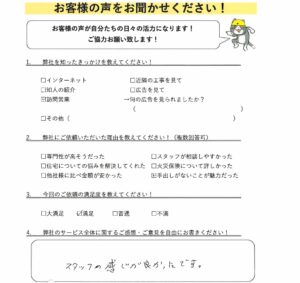 お客様の声をお聞かせください！
お客様の声が自分たちの日々の活力になります！
ご協力お願い致します！
1. 弊社を知ったきっかけを教えてください！
□インターネット □近隣の工事を見て
□知人の紹介 □広告を見て
☑訪問営業 →何の広告を見られましたか？
( )
□その他( )
2. 弊社にご依頼いただいた理由を教えてください！（複数回答可）
□専門性が高そうだった ☑スタッフが相談しやすかった
□住宅についての悩みを解決してくれた □火災保険について詳しかった
□他社様に比べ金額が安かった ☑手出しがないことが魅力だった
3. 今回のご依頼の満足度を教えてください！
□大満足 ☑満足 □普通 □不満
4. 弊社のサービス全体に関するご感想・ご意見を自由にお書きください！
スタッフの感じが良かったです。